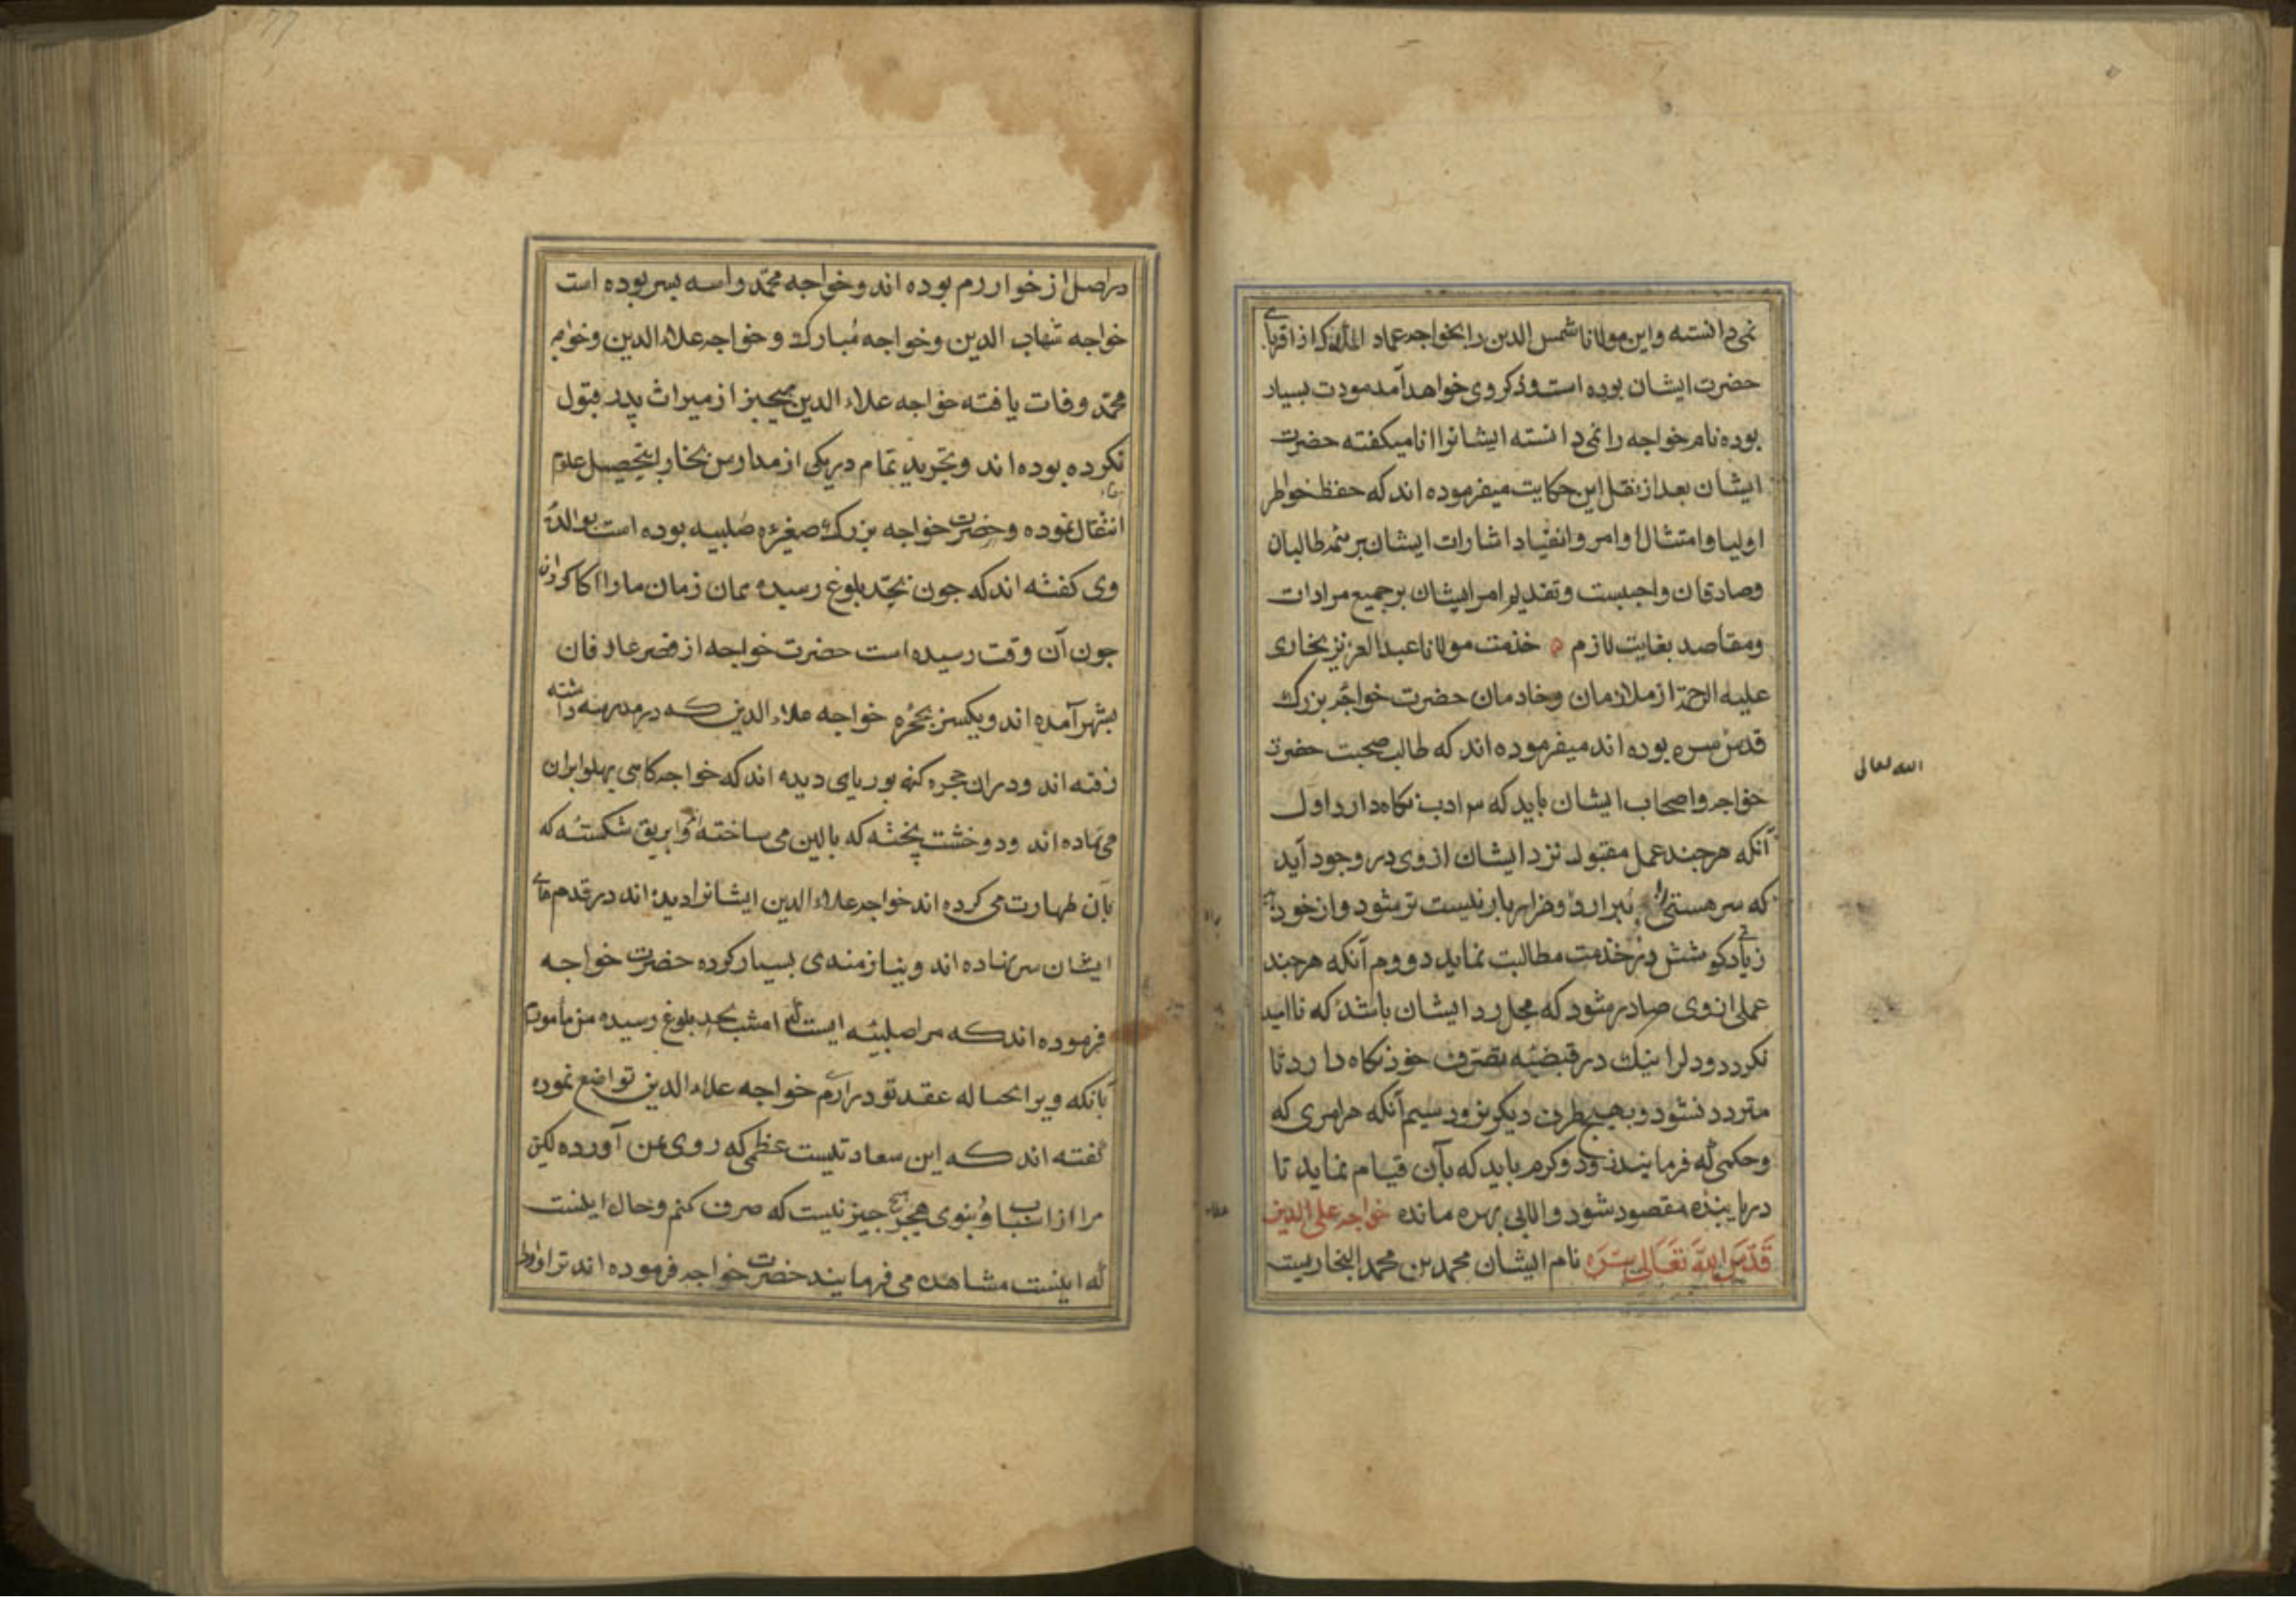 نمی دانسته و این مولانا شمس الدین را بخواجه عماد الملک که از اقربای
حضرت ایشان بوده است و ذکر وی خواهد آمد مودت بسیار
بوده نام خواجه را نمی دانسته ایشانرا انا میکفته حضرت
ایشان بعد از نقل این حکایت میفرموده اند که حفظ خواطر
اولیا و امتثال اوامر و انقیاد اشارات ایشان بر همه طالبان
و صادقان واجبست و تقدیم امر ایشان بر جمیع مرادات
و مقاصد بغایت لازم خدمت مولانا عبد العزیز بخاری
علیه الرحمة از ملازمان و خادمان حضرت خواجه بزرک
قدس سره بوده اند میفرموده اند که طالب صحبت حضرت
الله تعالی
خواجه و اصحاب ایشان باید که سه ادب نکاه دارد اول
آنکه هرچند عمل مقبول نزد ایشان از وی در وجود آید
که سر هستی را نیست تر شود و از خود
زیادتی کوشش در خدمت مطالبت نماید دووم آنکه هرچند
عملی از وی صادر شود که محل رد ایشان باشد که ناامید
نکردد و دل را نیک در قبضه تصرف خود نکاه دارد تا
متردد نشود و بهیچ طرف دیکر نرود سیم آنکه هر امری که
و حکمی که فرمایند زود و کرم باید که بآن قیام نماید تا
دریابنده مقصود شود و الا بی بهره مانده خواجه علی الدین
قدس الله تعالی سره نام ایشان محمد بن محمد البخاریست
در اصل از خوارزم بوده اند و خواجه محمد را سه پسر بوده است
خواجه شهاب الدین و خواجه مبارک و خواجه علاء الدین و خواجه
محمد وفات یافته خواجه علاء الدین هیچیز از میراث پدر قبول
نکرده بوده اند و بتجرید تمام در یکی از مدارس بخارا بتحصیل علوم
اشتغال نموده و حضرت خواجه بزرک صغیره صلبیه بوده است بوالده
وی کفته اند که چون بحد بلوغ رسیده همان زمان ما را اکاه کردان
چون آن وقت رسیده است حضرت خواجه از قصر عارفان
بشهر آمده اند و یکسر بحجره خواجه علاء الدین که در مدرسه داشته
رفته اند و دران حجره کنه بوریای دیده اند که خواجه کاهی پهلو بران
می نهاده اند و دو خشت پخته که بالین می ساخته اند و ابریق شکسته که
بآن طهارت می کرده اند خواجه علاء الدین ایشانرا دیده اند در قدم های
ایشان سر نهاده اند و نیازمندی بسیار کرده حضرت خواجه
فرموده اند که مرا صلبیه ایست که امشب بحد بلوغ رسیده من مامورم
بآنکه ویرا بحباله عقد تو درآرم خواجه علاء الدین تواضع نموده
کفته اند که این سعادتیست عظمی که روی بمن آورده لیکن
مرا از اسباب دنیوی هیچ چیز نیست که صرف کنم و حال اینست
که اینست مشاهده می فرمایند حضرت خواجه فرموده اند ترا و او را